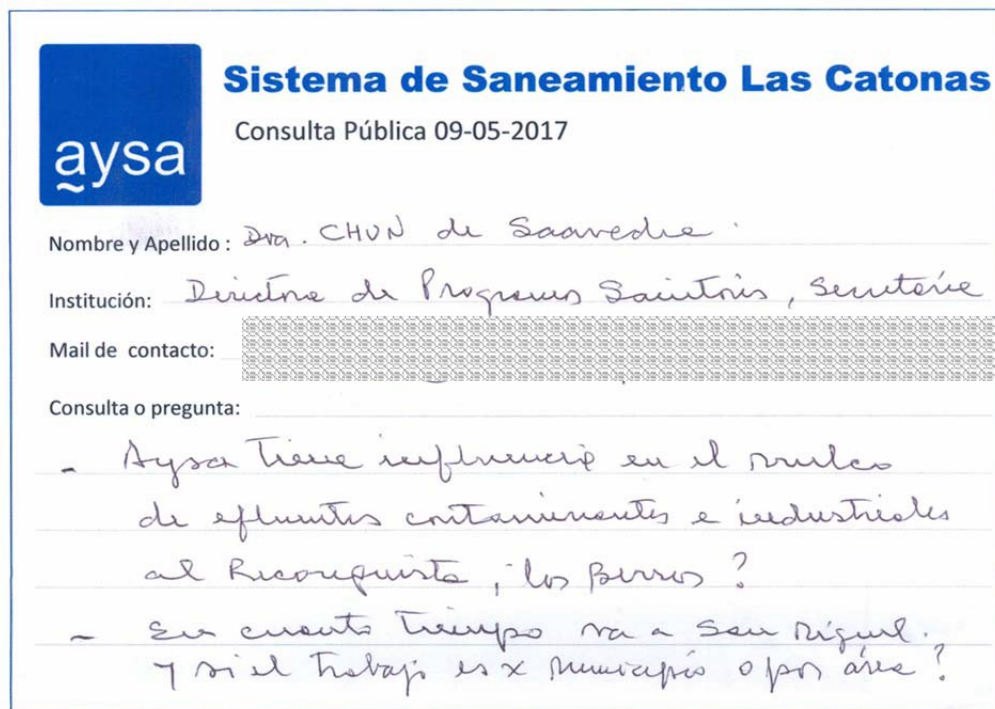 aysa
Sistema de Saneamiento Las Catonas
Consulta Pública 09-05-2017
Nombre y Apellido : Dra. CHUN de Saavedra.
Institución: Directora de Programas Sanitarios, Secretaría
Mail de contacto:
Consulta o pregunta:
- Aysa tiene influencia en el vuelco
de efluentes contaminantes e industriales
al Reconquista, los Berros?
- En cuanto tiempo va a San Miguel.
y si el trabajo es x municipio o por área?